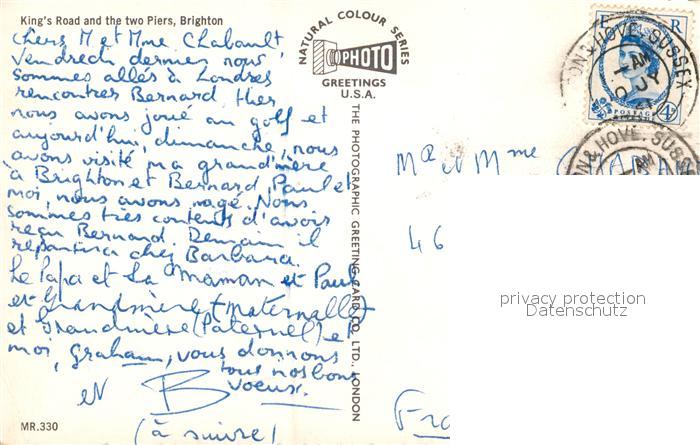 King's Road and the two Piers, Brighton
Chers M et Mme Chabault,
Vendredi dernier nous
sommes allés à Londres
rencontrer Bernard. Hier
nous avons joué au golf et
aujourd'hui, dimanche, nous
avons visité ma grand'mère
à Brighton et Bernard, Paul et
moi, nous avons nagé. Nous
sommes très contents d'avois
reçu Bernard. Demain il
repartira chez Barbara.
Le Papa et La Maman et Paul
et Grandmère (maternelle)
et Grandmère (Paternel) et
moi, Graham, vous donnons
tous nos bons
voeux.
et B
(à suivre)
MR.330
NATURAL COLOUR SERIES
PHOTO
GREETINGS
U.S.A.
THE PHOTOGRAPHIC GREETING CARD CO. LTD., LONDON
E R
POSTAGE
4D
ON & HOVE. SUSSEX
AM
JY
ON & HOVE. SUSS
AM
M et Mme
46
privacy protection
Datenschutz
Fra